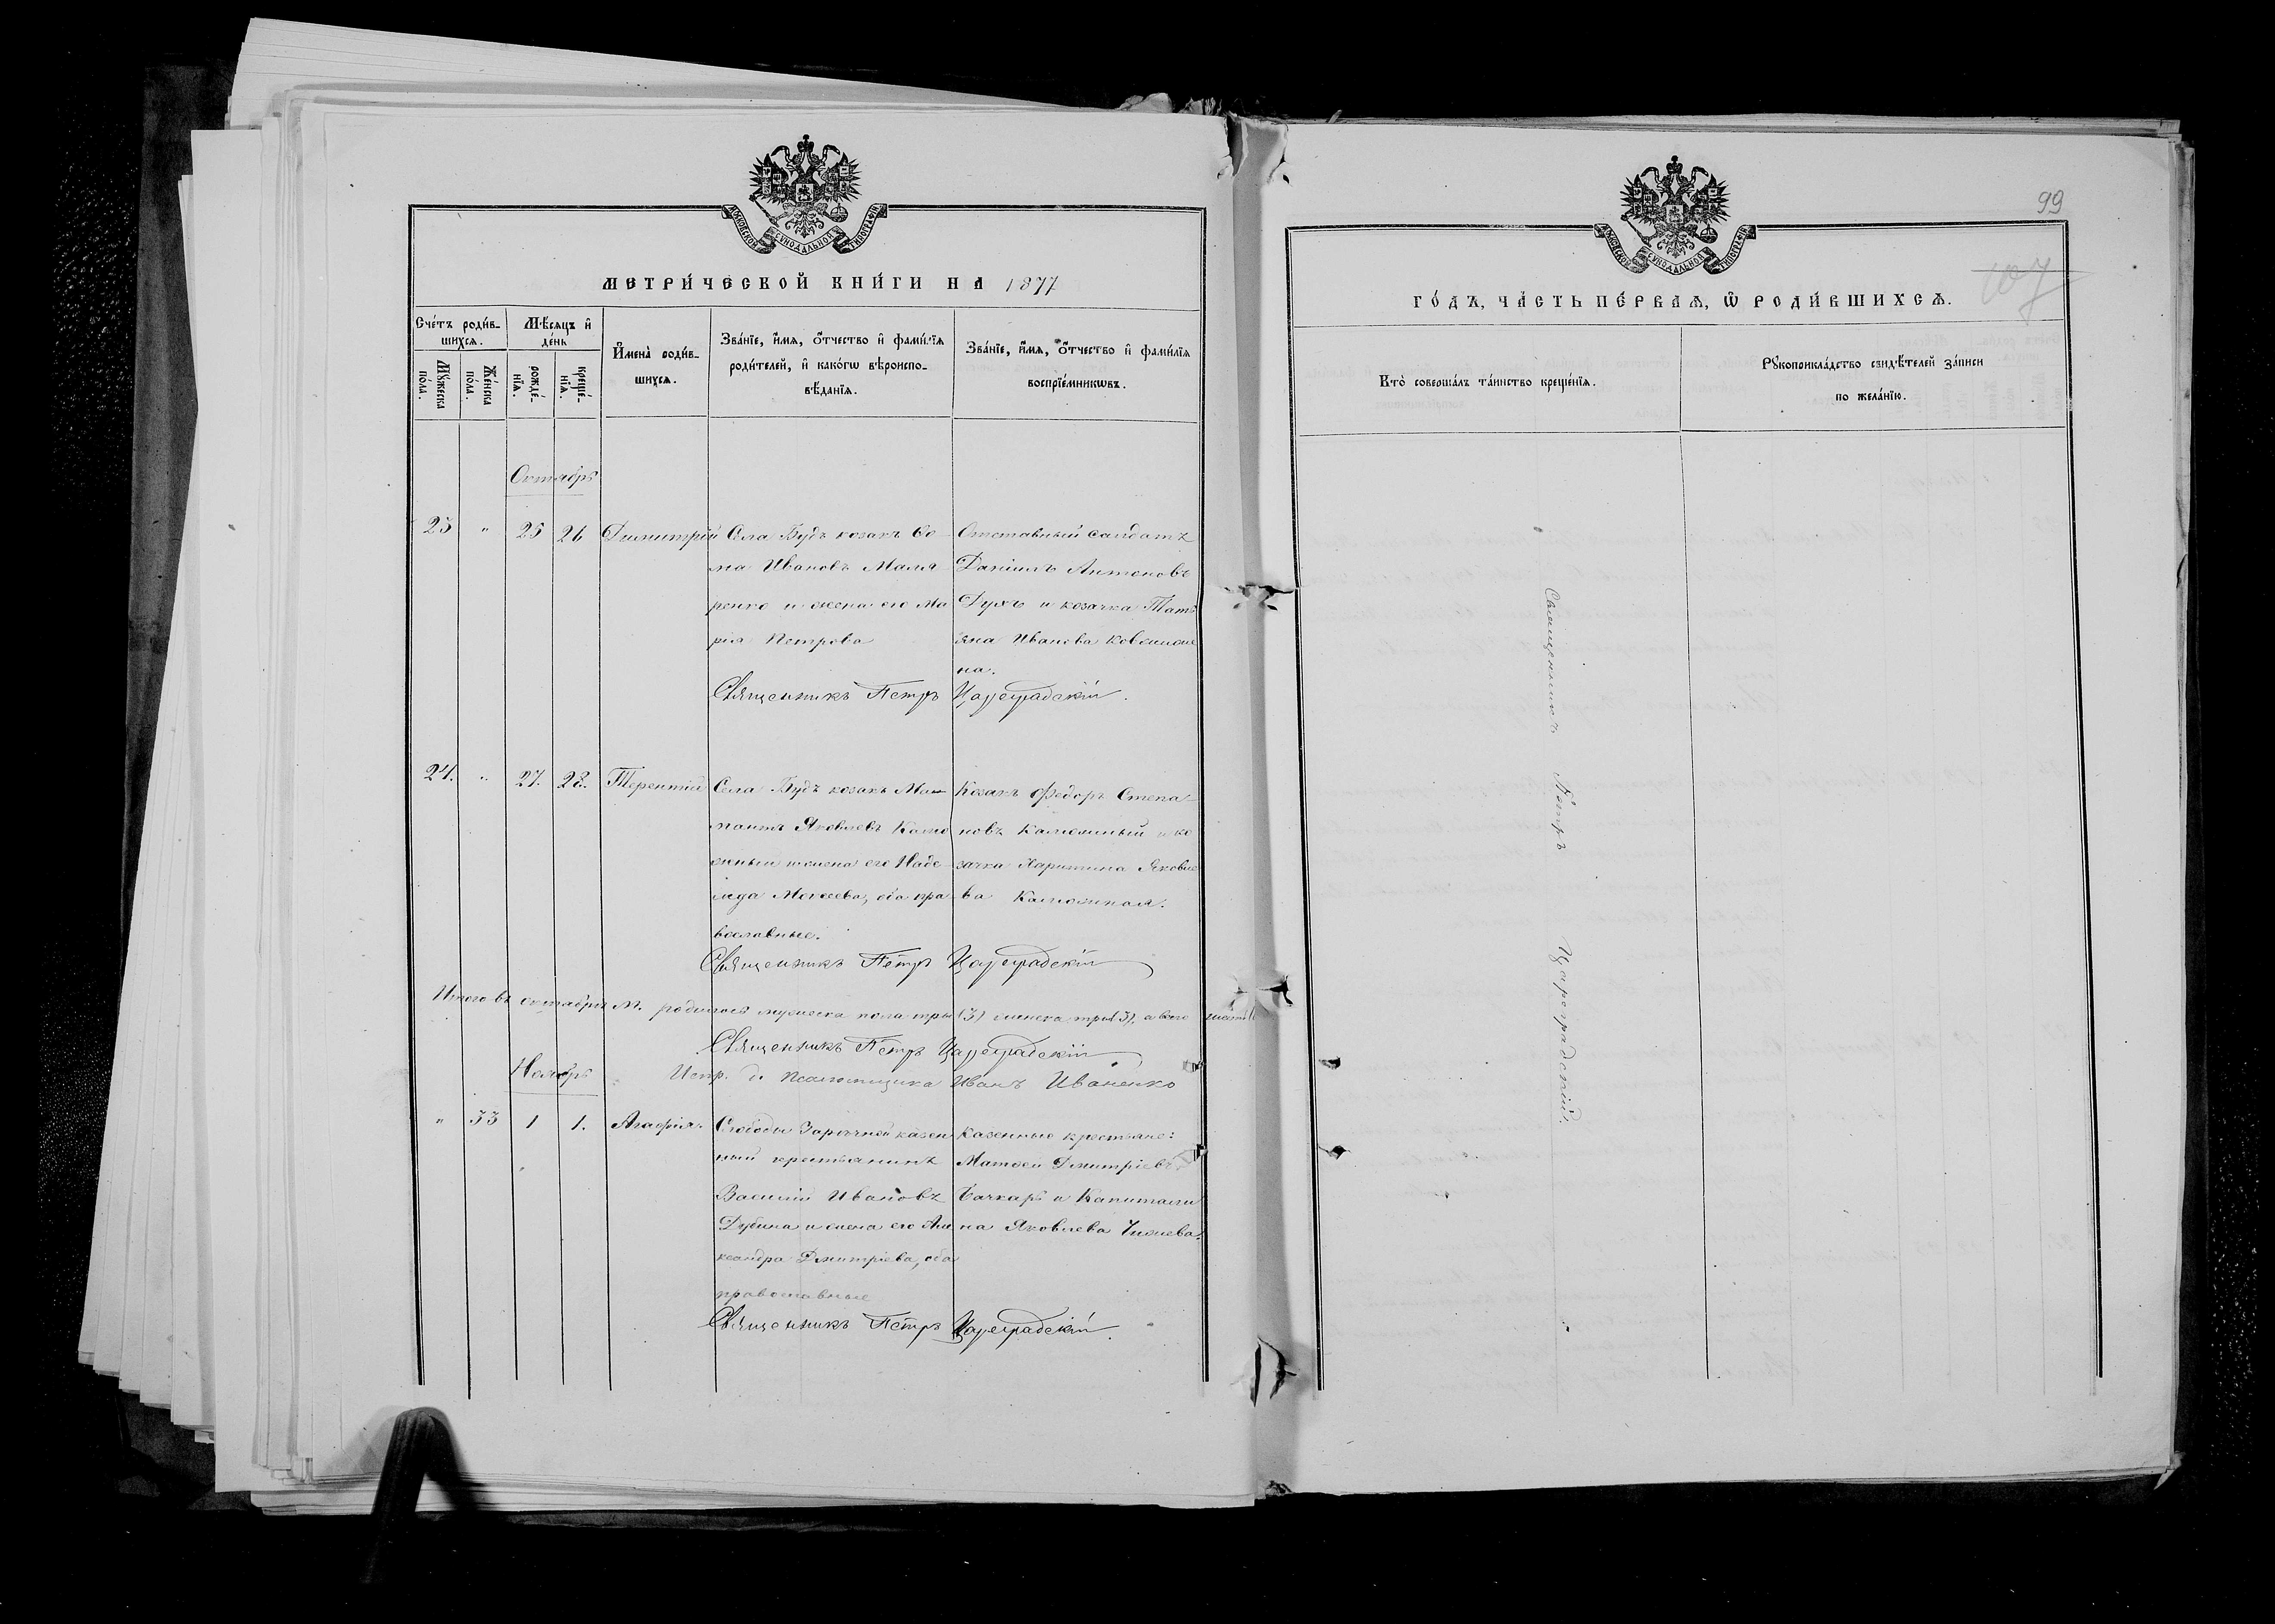 МОСКОВСКОЙ СУНОДАЛЬНОЙ ТИПОГРАФІИ
МЕТРИ́ЧЕСКОЙ КНИ́ГИ НА 1877
Сче́тъ роди́в-
шихсѧ.
Мꙋ́жеска по́ла.
Же́нска по́ла.
Мѣ́сяцъ и҆
де́нь
рожде́-
нїѧ.
креще́-
нїѧ.
И҆мена̀ роди́в-
шихсѧ.
Зва́нїе, и҆́мѧ, ѻ҆́тчество и҆ фами́лїѧ
роди́телей, и҆ како́гѡ вѣроиспо-
вѣ́данїѧ.
Зва́нїе, и҆́мѧ, ѻ҆́тчество и҆ фами́лїѧ
воспрїе́мникѡвъ.
Октябрь
23 " 25 26 Димитрій Села Будъ козакъ Ѳо-
ма Ивановъ Маля-
ренко и жена его Ма
рія Петрова
Отставный салдатъ
Даніилъ Антоновъ
Духъ и козачка Тать
яна Иванова
на.
Священникъ Петръ Цареградскій.
24. " 27. 28. Терентій Села Будъ козакъ
Яковлевъ Калю
жный и жена его Наде-
жда Моисеева, оба пра-
вославные.
Козакъ Федоръ Степа-
новъ Калюжный и ко
зачка Харитина Яковле
ва Калюжная.
Священникъ Петръ Цареградскій
Итого въ октябрѣ м. родилось мужеска пола три (3) женска три (3), а всего шесть
Священникъ Петръ Цареградскій
Ноябрь
Испр. д. Псаломщика Иванъ Иваненко
" 33 1 1. Агафія. Слободы Заричной казен
ный крестьянинъ
Василій Ивановъ
Дубина и жена его Але
ксандра Дмитріева, оба
православные
Казенные крестьяне:
Матѳей Дмитріевъ
Бачкарь и Капитоли
на Яковлева
Священникъ Петръ Цареградскій.
99
107
МОСКОВСКОЙ СУНОДАЛЬНОЙ ТИПОГРАФІИ
ГО́ДЪ, ЧА́СТЬ ПЕ́РВАѦ, Ѡ҆ РОДИ́ВШИХСѦ.
Кто̀ соверша́лъ та́инство креще́нїѧ.
Рꙋкоприкла́дство свидѣ́телей за́писи
по жела́нїю.
Священникъ Петръ Цареградскій.